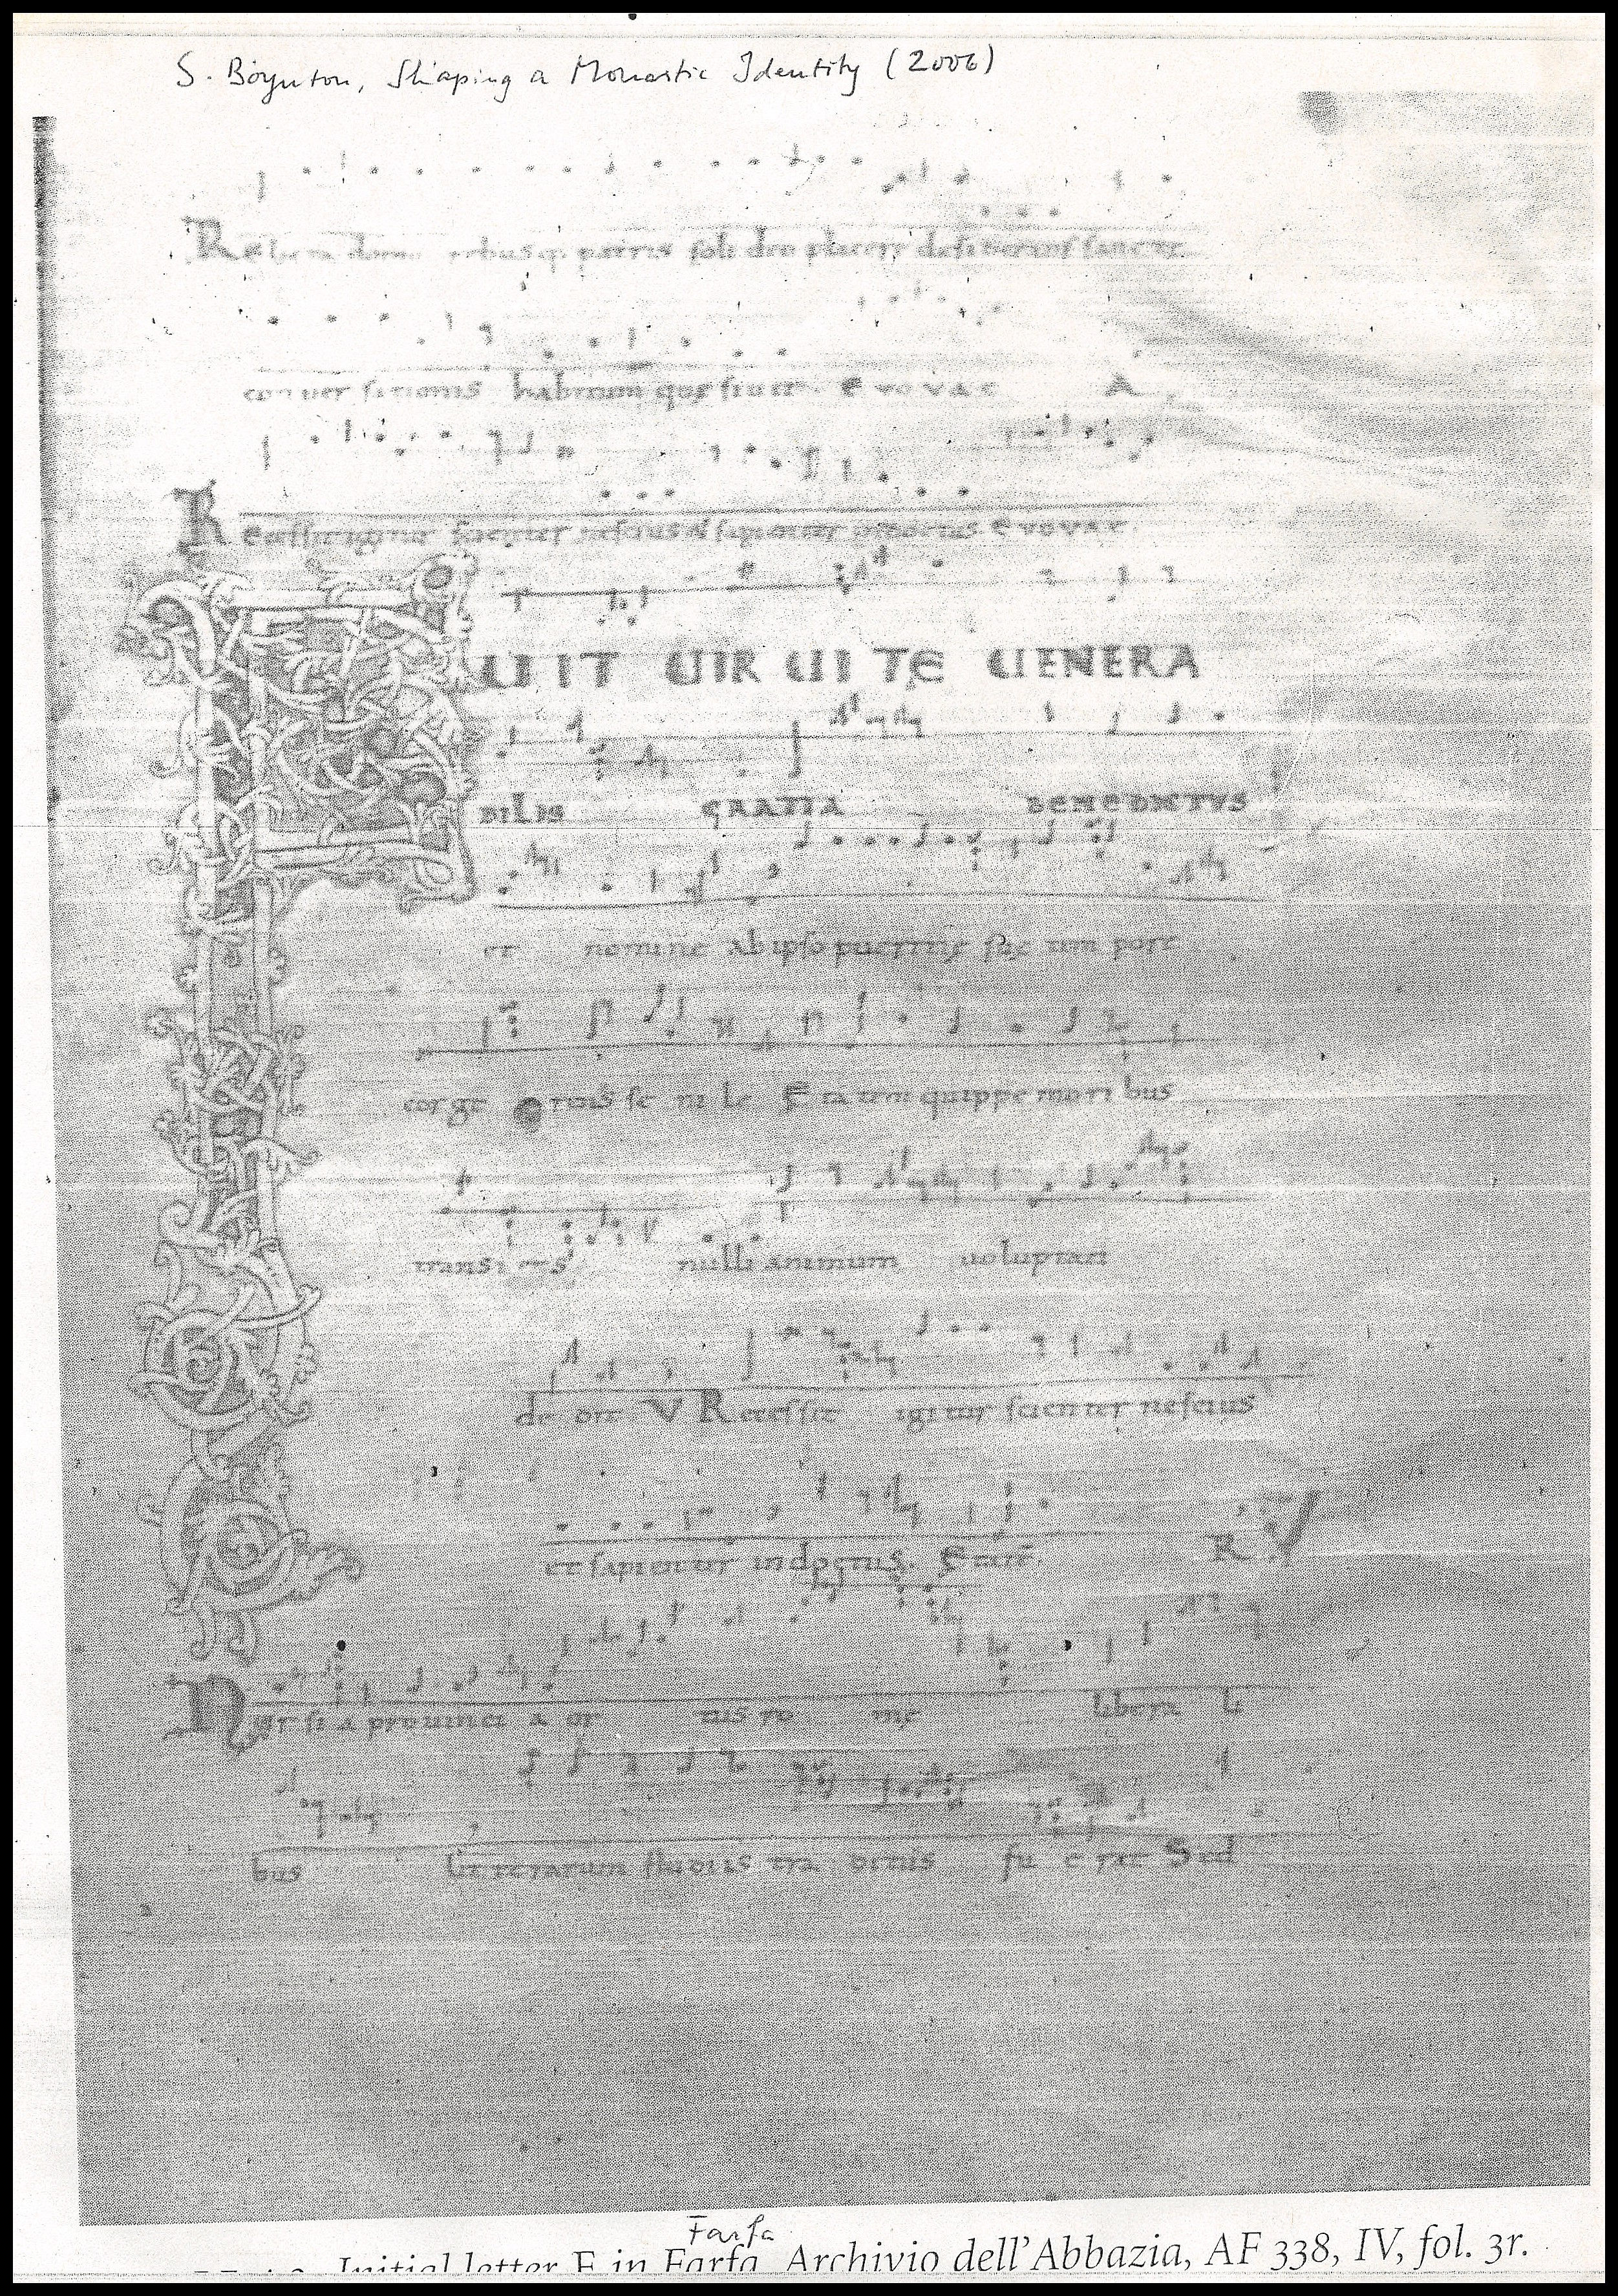 S. Boynton, Shaping a Monastic Identity (2006)
patris soli deo placere desiderans sancte
conver sationis habitum quesivit. E vo vae A
R ecessit igitur scienter nescius & sapienter indoctus. E vovae.
F UIT UIR UI TE UENERA
BILIS GRATIA BENEDICTVS
et nomine Ab ipso pueritie sue tem pore
cor ge renis se ni le E ta tem quippe mori bus
transi ens nulli animum voluptati
de dit. V Recessit igi tur scien ter nescius
et sapienter indoctus. Etate. R
N ur si a provinci a or tus ro me libera li
bus litterarum studiis tra ditus fu e rat Sed
Farfa
Initial letter F in Farfa, Archivio dell'Abbazia, AF 338, IV, fol. 3r.